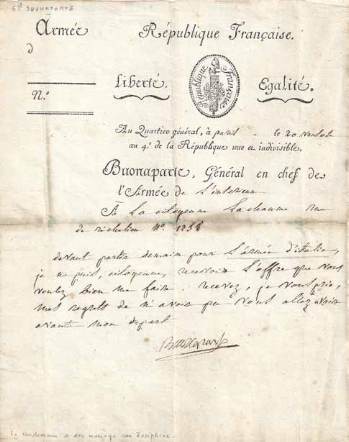 Gl Buonaparte
Armée
République Française.
d
Liberté.
République Française
Egalité.
N.o
Au Quartier général, à paris le 20 ventose
au 4.e de la République une et indivisible.
Buonaparte, Général en chef de
l'Armée de l'intérieur
A la citoyenne rue
de richelieu No.
devant partir demain pour l'armée d'italie,
je ne puis, citoyenne, recevoir l'offre que vous
voulez bien me faire. recevez, je vous prie,
mes regrets de n'avoir pu vous
avant mon départ
Buonaparte
Le lendemain de son mariage avec Joséphine